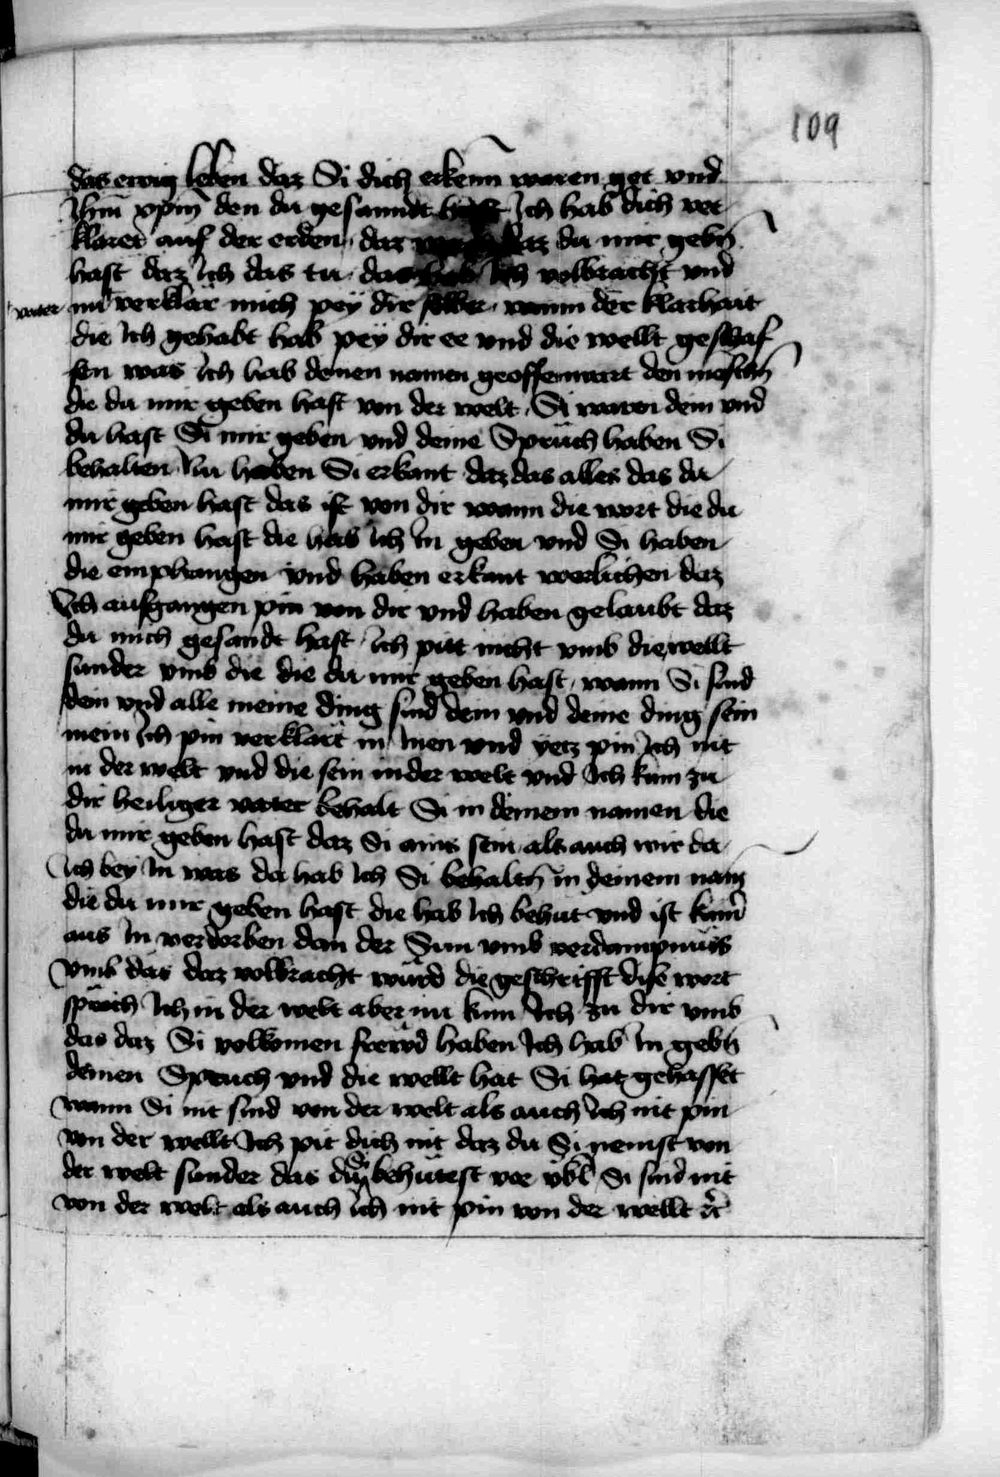 109
das ewig leben daz Si dich erkenn̄ waren got vnd
Jhm̄ xpm̄ den du gesanndt hast Ich hab dich ver
klaret auf der erden daz daz du mir gebn̄
hast daz Ich das tu das hab Ich volbracht vnd
vater nu verklär mich pey dir selber wann der klarhait
die Ich gehabt hab pey dir ee vnd die wellt geschaf
fen was Ich hab deinen namen geoffenwart den mēschn̄
die du mir geben hast von der welt Si waren dein vnd
du hast Si mir geben vnd deine Sprüch haben Si
behalten Nu haben Si erkant daz das alles das du
mir geben hast das ist von dir wann die wort die du
mir geben hast die hab Ich In geben vnd Si haben
die emphangen vnd haben erkant werlichen daz
Ich ausgangen pin von dir vnd haben gelaubt daz
du mich gesandt hast Ich pitt nicht vmb die wellt
sunder vmb die die du mir geben hast wann Si sind
dein vnd alle meine ding sind dein vnd deine ding sein
mein Ich pin verklärt in Inen vnd yetz pin Ich nit
in der welt vnd die sein in der welt vnd Ich kum zu
dir heiliger vater behalt Si in deinem namen die
du mir geben hast daz Si ains sein als auch wir da
Ich bey In was da hab Ich Si behaltn̄ in deinem nam̄
die du mir geben hast die hab Ich behut vnd ist kain̄
aus In verdorben dan der Sun vmb verdampnuss
vmb das daz volbracht würd die geschrifft dise wort
sprich Ich in der welt aber nu kum Ich zu dir vmb
das daz Si volkomen frewd haben Ich hab In gebn̄
deinen Spruch vnd die wellt hat Si hat gehasset
wann Si nit sind von der welt als auch Ich nit pin
von der wellt Ich pit dich nit daz du Si nemst von
der welt sunder das du Si behütest vor vbl Si sind nit
von der welt als auch Ich nit pin von der wellt etc̄